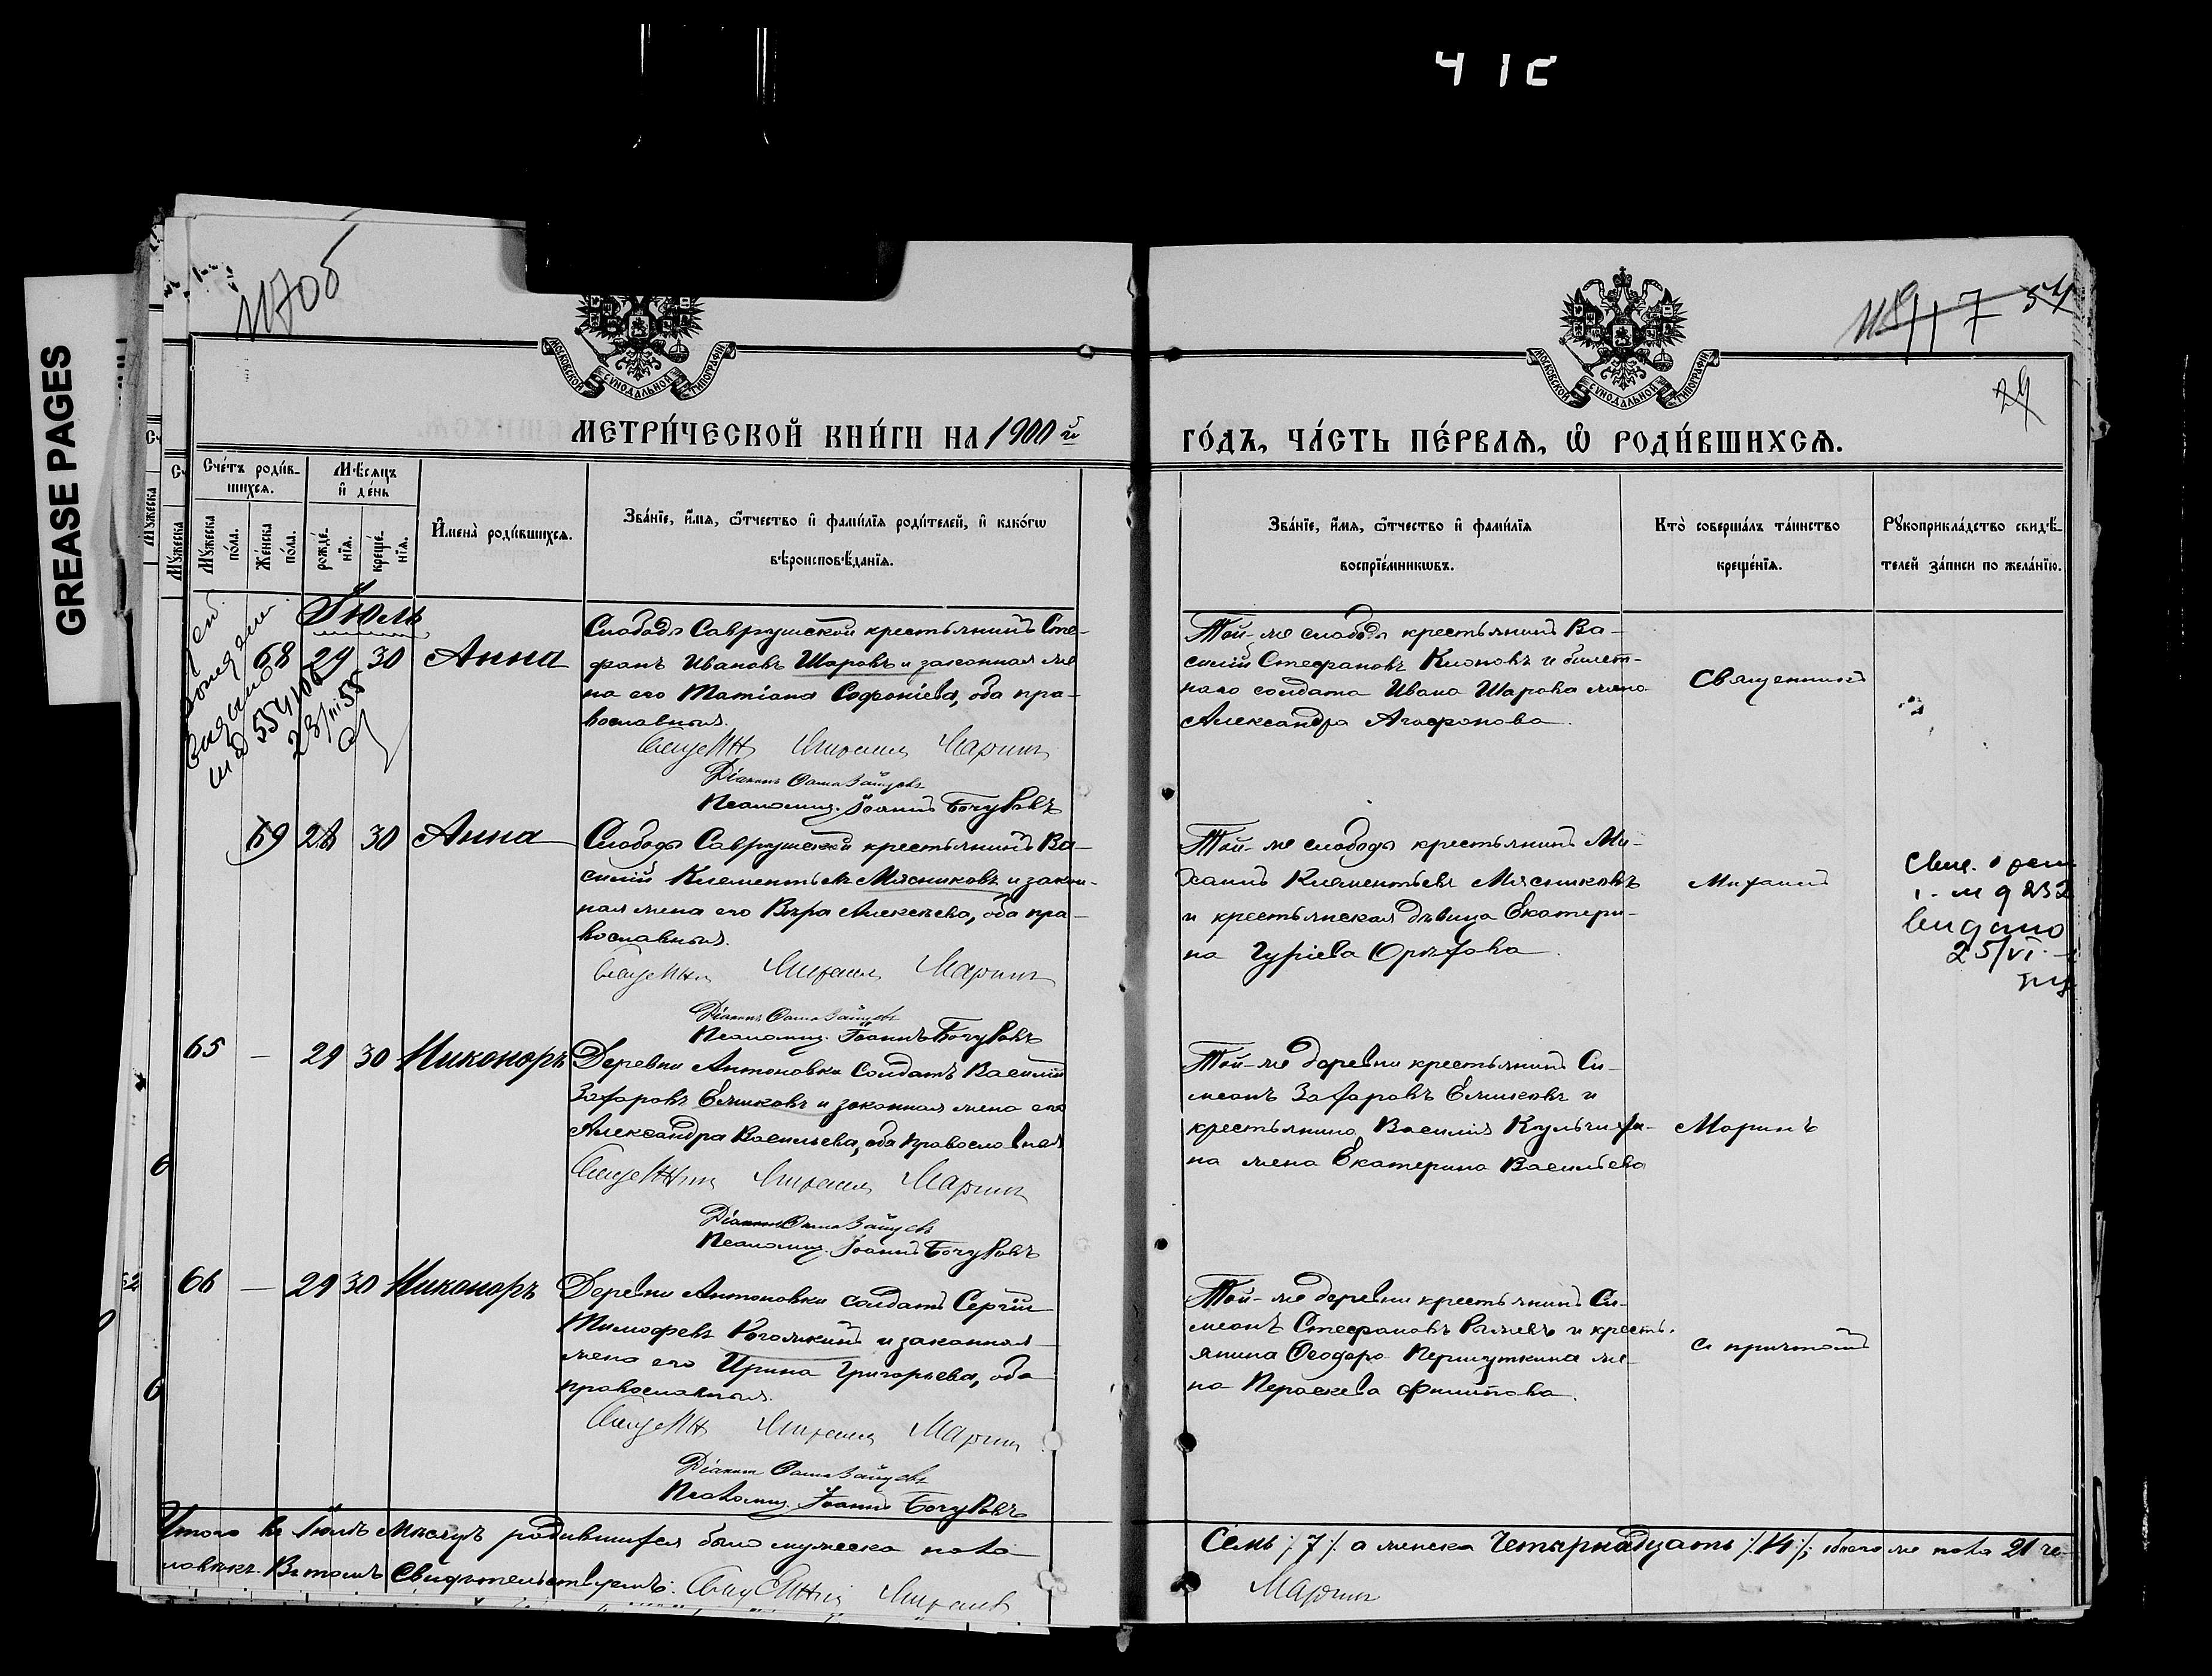 41C
GREASE PAGES
1170б
117 54
29
МОСКОВСКОЙ СѴНОДАЛЬНОЙ ТИПОГРАФІИ
МОСКОВСКОЙ СѴНОДАЛЬНОЙ ТИПОГРАФІИ
МЕТРИ́ЧЕСКОЙ КНИ́ГИ НА 1900 й
ГО́ДЪ, ЧА́СТЬ ПЕ́РВАѦ, Ѡ҆ РОДИ́ВШИХСѦ.
Сче́тъ роди́в-
шихсѧ.
Мѣ́сѧцъ
и҆ де́нь
Мꙋ́жеска
по́ла.
Же́нска
по́ла.
рожде́-
нїѧ.
креще́-
нїѧ.
И҆мена̀ роди́вшихсѧ.
Зва́нїе, и҆́мѧ, ѻ҆́тчество и҆ фами́лїѧ роди́телей, и҆ како́гѡ
вѣроисповѣ́данїѧ.
Зва́нїе, и҆́мѧ, ѻ҆́тчество и҆ фами́лїѧ
воспрїе́мникѡвъ.
Кто̀ соверша́лъ та́инство
креще́нїѧ.
Рꙋкоприкла́дство свидѣ́-
телей за́писи по жела́нїю.
Іюль
68 29 30 Анна
Слободы Саврушской крестьянинъ Сте-
фанъ Ивановъ Шаровъ и законная же-
на его Татіана Софоніева, оба пра-
вославныя.
Священн Михаилъ Маринъ
Діаконъ Ѳома Зайцевъ
Псаломщ. Іоаннъ Бочуровъ
Той-же слободы крестьянинъ Ва-
силій Стефановъ Клоновъ и билет-
наго солдата Ивана Шарова жена
Александра Агафонова.
Священникъ
выдано
23/III 55
69 28 30 Анна
Слободы Саврушской крестьянинъ Ва-
силій Климентьевъ Мясниковъ и закон-
ная жена его Вѣра Алексѣева, оба пра-
вославныя.
Священни Михаилъ Маринъ
Діаконъ Ѳома Зайцевъ
Псаломщ. Іоаннъ Бочуровъ
Той-же слободы крестьянинъ Ми-
хаилъ Климентьевъ Мясниковъ
и крестьянская дѣвица Екатери-
на Гуріева Орѣхова.
Михаилъ
выдано
25/VI
65 – 29 30 Никоноръ
Деревни Антоновки солдатъ Василій
Захаровъ Ёлшковъ и законная жена его
Александра Васильева, оба православныя
Священни Михаилъ Маринъ
Діаконъ Ѳома Зайцевъ
Псаломщ. Іоаннъ Бочуровъ
Той-же деревни крестьянинъ Си-
меонъ Захаровъ Ёлшковъ и
крестьянина Василія
на жена Екатерина Васильева
Маринъ
66 – 29 30 Никоноръ
Деревни Антоновки солдатъ Сергій
Тимофеевъ Рогожкинъ и законная
жена его Ирина Григорьева, оба
православныя.
Священн Михаилъ Маринъ
Діаконъ Ѳома Зайцевъ
Псаломщ. Іоаннъ Бочуровъ
Той-же деревни крестьянинъ Си-
меонъ Стефановъ и кресть-
янина Ѳеодора Першуткина же-
на Параскева Филипова.
съ причтомъ
Итого въ Іюлѣ мѣсяцѣ родившихся было мужеска пола
Семь /7/ а женска Четырнадцать /14/, обоего же пола 21 че-
ловѣкъ. Въ томъ свидѣтельствуемъ: Священни Михаилъ
Маринъ